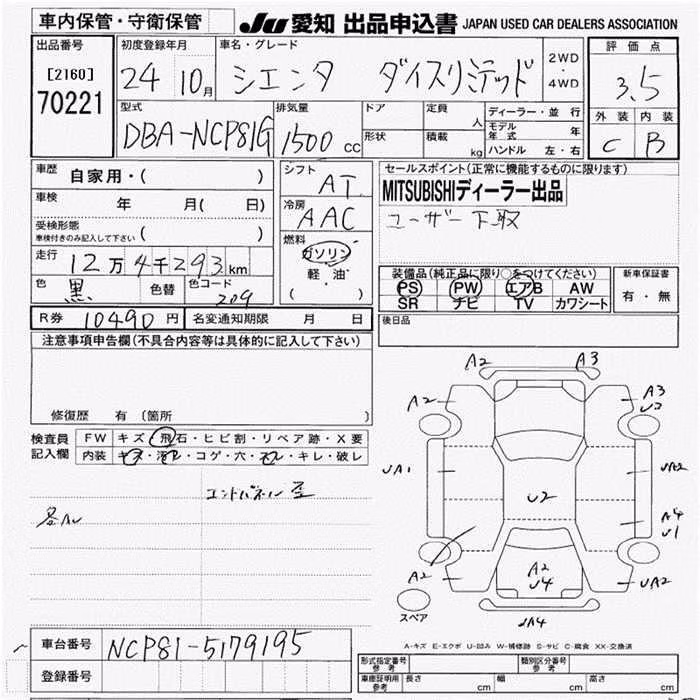 車内保管・守衛保管
JU 愛知 出品申込書 JAPAN USED CAR DEALERS ASSOCIATION
出品番号 初度登録年月 車名・グレード 評価点
[2160] 24 10月 シエンタ ダイスリミテッド 2WD・4WD 3.5
70221 型式 排気量 ドア 定員 人 ディーラー・並行 外装 内装
DBA-NCP81G 1500 CC 形状 積載 kg モデル年式 年 C B
ハンドル 左・右
車歴 自家用・( ) シフト AT セールスポイント(正常に機能するものに限ります)
車検 年 月( 日) 冷房 AAC MITSUBISHIディーラー出品
受検形態 ( ) ユーザー下取
車検付きのみ記入して下さい
燃料 ガソリン
走行 12万4千293km 軽・油 装備品(純正品に限り○をつけてください) 新車保証書
色 黒 色替 色コード 209 ( ) PS PW エアB AW 有・無
SR ナビ TV カワシート
R券 10490円 名変通知期限 月 日 後日品
注意事項申告欄(不具合内容等は具体的に記入して下さい)
修復歴 有 (箇所 )
検査員 FW キズ・飛石・ヒビ割・リペア跡・X要
記入欄 内装 キズ・汚レ・コゲ・穴・スレ・キレ・破レ
エンドパネル歪
各AU
A2 A3
A2 A3
U2
UA1 UA2
U2
A4
U1
A2 A2 UA2
U4
UA4
スペア
A-キズ E-エクボ U-凹み W-補修跡 S-サビ C-腐食 XX-交換済
車台番号 NCP81-5179195
登録番号
形式指定番号 参考 類別区分番号 参考
車庫証明用 参考 長さ cm 幅 cm 高さ cm